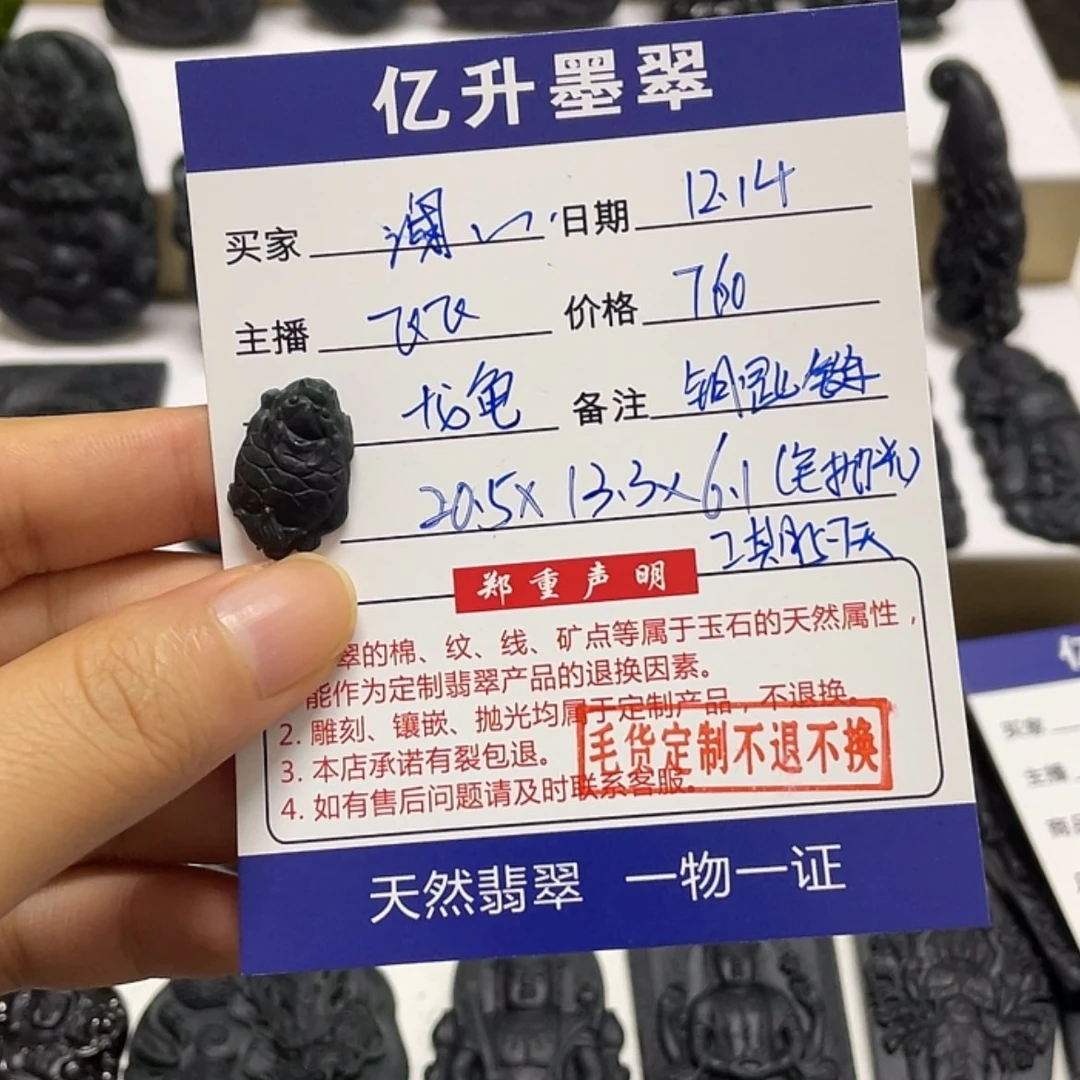 亿升墨翠
买家 澜 日期 12.14
主播 双双 价格 760
龙龟 备注 钥匙链
20.5×13.3×6.1(宅抛光)
工期15-7天
郑重声明
翠的棉、纹、线、矿点等属于玉石的天然属性，
能作为定制翡翠产品的退换因素。
2. 雕刻、镶嵌、抛光均属于定制产品，不退换。
3. 本店承诺有裂包退。
毛货定制不退不换
4. 如有售后问题请及时联系客服。
天然翡翠 一物一证
亿
买家
主播
商品